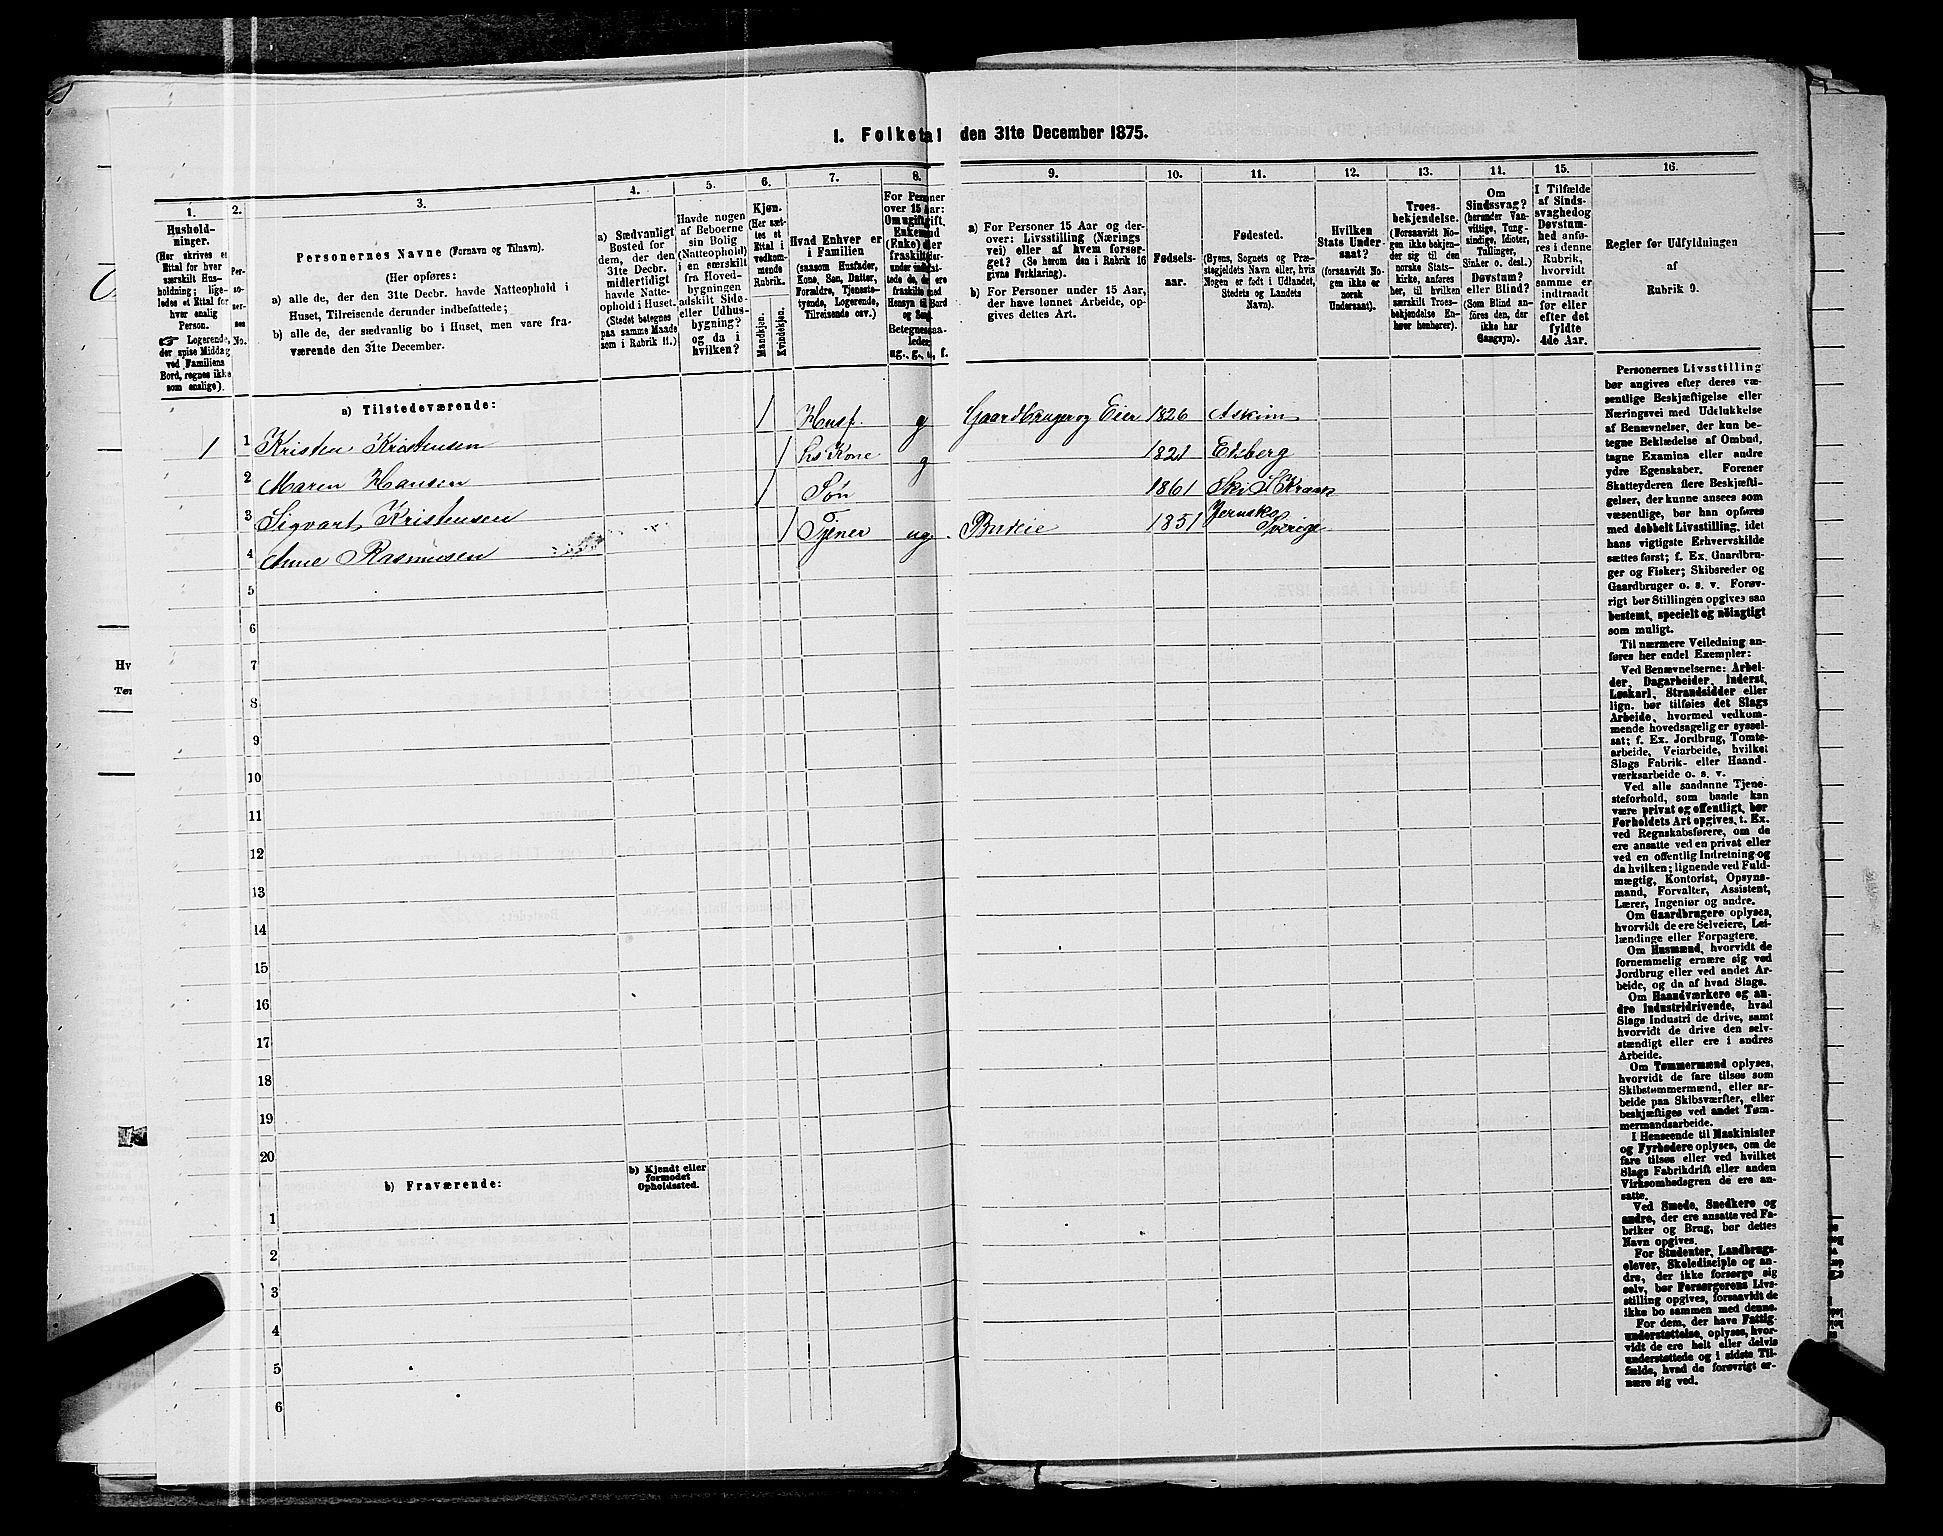 1. Folketal den 31te December 1875.
1.
Hushold-
ninger.
(Her skrives et
Ettal for hver
særskilt Hus-
holdning; lige-
ledes et Ettal for
hver enslig
Person.
☞ Logerende,
der spise Middag
ved Familiens
Bord, regnes ikke
som enslige).
2.
Per-
so-
ner-
nes
No.
3.
Personernes Navne (Fornavn og Tilnavn).
(Her opføres:
a) alle de, der den 31te Decbr. havde Natteophold i
Huset, Tilreisende derunder indbefattede;
b) alle de, der sædvanlig bo i Huset, men vare fra-
værende den 31te December.
4.
a) Sædvanligt
Bosted for
dem, der den
31te Decbr.
midlertidigt
havde Natte-
ophold i Huset.
(Stedet betegnes
paa samme Maade
som i Rubrik 11.)
5.
Havde nogen
af Beboerne
sin Bolig
(Natteophold)
i en særskilt
fra Hoved-
bygningen
adskilt Side-
eller Udhus-
bygning?
og da i
hvilken?
6.
Kjøn.
(Her sæt-
tes et
Ettal i
vedkom-
mende
Rubrik.
Mandkjøn.
Kvindekjøn.
7.
Hvad Enhver er
i Familien
(saasom Husfader,
Kone, Søn, Datter,
Forældre, Tjeneste-
tyende, Logerende,
Tilreisende osv.)
8.
For Personer
over 15 Aar:
9.
a) For Personer 15 Aar og der-
over: Livsstilling (Nærings-
vei) eller af hvem forsør-
get? (Se herom den i Rubrik 16
givne Forklaring).
b) For Personer under 15 Aar,
der have lønnet Arbeide, op-
gives dettes Art.
10.
Fødsels-
aar.
11.
Fødested.
(Byens, Sognets og Præ-
stegjeldets Navn eller, hvis
Nogen er født i Udlandet,
Stedets og Landets
Navn).
12.
Hvilken
Stats Under-
saat?
(forsaavidt No-
gen ikke er
norsk
Undersaat).
13.
Troes-
bekjendelse.
(Forsaavidt No-
gen ikke bekjen-
der sig til den
norske Stats-
kirke, anføres
her, til hvilken
særskilt Troes-
bekjendelse En-
hver henhører).
14.
Om
Sindssvag?
(herunder Van-
vittige, Tung-
sindige, Idioter,
Tullinger,
Sinker o. desl.)
Døvstum?
eller Blind?
(Som Blind an-
føres den, der
ikke har
Gangsyn).
15.
I Tilfælde
af Sinds-
svaghed og
Døvstum-
hed anfø-
res i denne
Rubrik,
hvorvidt
samme er
indtraadt
før eller
efter det
fyldte
4de Aar.
16.
Regler for Udfyldningen
af
Rubrik 9.
a) Tilstedeværende:
1 1 Kristen Kristensen 1 Husf. g Gaardbruger og Eier 1826 Askim
2 Maren Hansen 1 hs Kone g 1821 Eidsberg
3 Sigvart Kristensen 1 Søn 1861 Ski
4 Anne Rasmusen 1 Tjener ug. Budeie 1851 Sverige
5
6
7
8
9
10
11
12
13
14
15
16
17
18
19
20
b) Fraværende:
b) Kjendt eller
formodet
Opholdssted.
1
2
3
4
5
6
Personernes Livsstilling
bør angives efter deres væ-
sentlige Beskjæftigelse eller
Næringsvei med Udelukkelse
af Benævnelser, der kun be-
tegne Beklædelse af Ombud,
tagne Examina eller andre
ydre Egenskaber. Forener
Skatteyderen flere Beskjæfti-
gelser, der kunne ansees som
væsentlige, bør han opføres
med dobbelt Livsstilling, idet
hans vigtigste Erhvervskilde
sættes først; f. Ex. Gaardbru-
ger og Fisker; Skibsreder og
Gaardbruger o. s. v. Forøv-
rigt bør Stillingen opgives saa
bestemt, specielt og nøiagtigt
som muligt.
Til nærmere Veiledning an-
føres her endel Exempler:
Ved Benævnelserne: Arbei-
der, Dagarbeider, Inderst,
Løskarl, Strandsidder eller
lign. bør tilføies det Slags
Arbeide, hvormed vedkom-
mende hovedsagelig er syssel-
sat; f. Ex. Jordbrug, Tomte-
arbeide, Veiarbeide, hvilket
Slags Fabrik- eller Haand-
værksarbeide o. s. v.
Ved alle saadanne Tjene-
steforhold, som baade kan
være privat og offentligt, bør
Forholdets Art opgives, t. Ex.
ved Regnskabsførere, om de
ere ansatte ved en privat eller
ved en offentlig Indretning og
da hvilken; lignende ved Fuld-
mægtig, Kontorist, Opsyns-
mand, Forvalter, Assistent,
Lærer, Ingeniør og andre.
Om Gaardbrugere oplyses,
hvorvidt de ere Selveiere, Lei-
lændinge eller Forpagtere.
Om Husmænd, hvorvidt de
fornemmelig ernære sig ved
Jordbrug eller ved andet Ar-
beide, og da af hvad Slags.
Om Haandværkere og an-
dre Industridrivende, hvad
Slags Industri de drive, samt
hvorvidt de drive den selv-
stændigt eller ere i andres
Arbeide.
Om Tømmermænd oplyses,
hvorvidt de fare tilsøs som
Skibstømmermænd, eller ar-
beide paa Skibsværfter, eller
beskjæftiges ved andet Tøm-
mermandsarbeide.
I Henseende til Maskinister
og Fyrbødere oplyses, om de
fare tilsøs eller ved hvilket
Slags Fabrikdrift eller anden
Virksomhedsgren de ere an-
satte.
Ved Smede, Snedkere og
andre, der ere ansatte ved Fa-
briker og Brug, bør dettes
Navn opgives.
For Studenter, Landbrugs-
elever, Skoledisciple og an-
dre, der ikke forsørge sig
selv, bør Forsørgerens Livs-
stilling opgives, forsaavidt de
ikke bo sammen med denne.
For dem, der have Fattig-
understøttelse, oplyses, hvor-
vidt de ere helt eller delvis
understøttede og i sidste Til-
fælde, hvad de forøvrigt er-
nære sig ved.